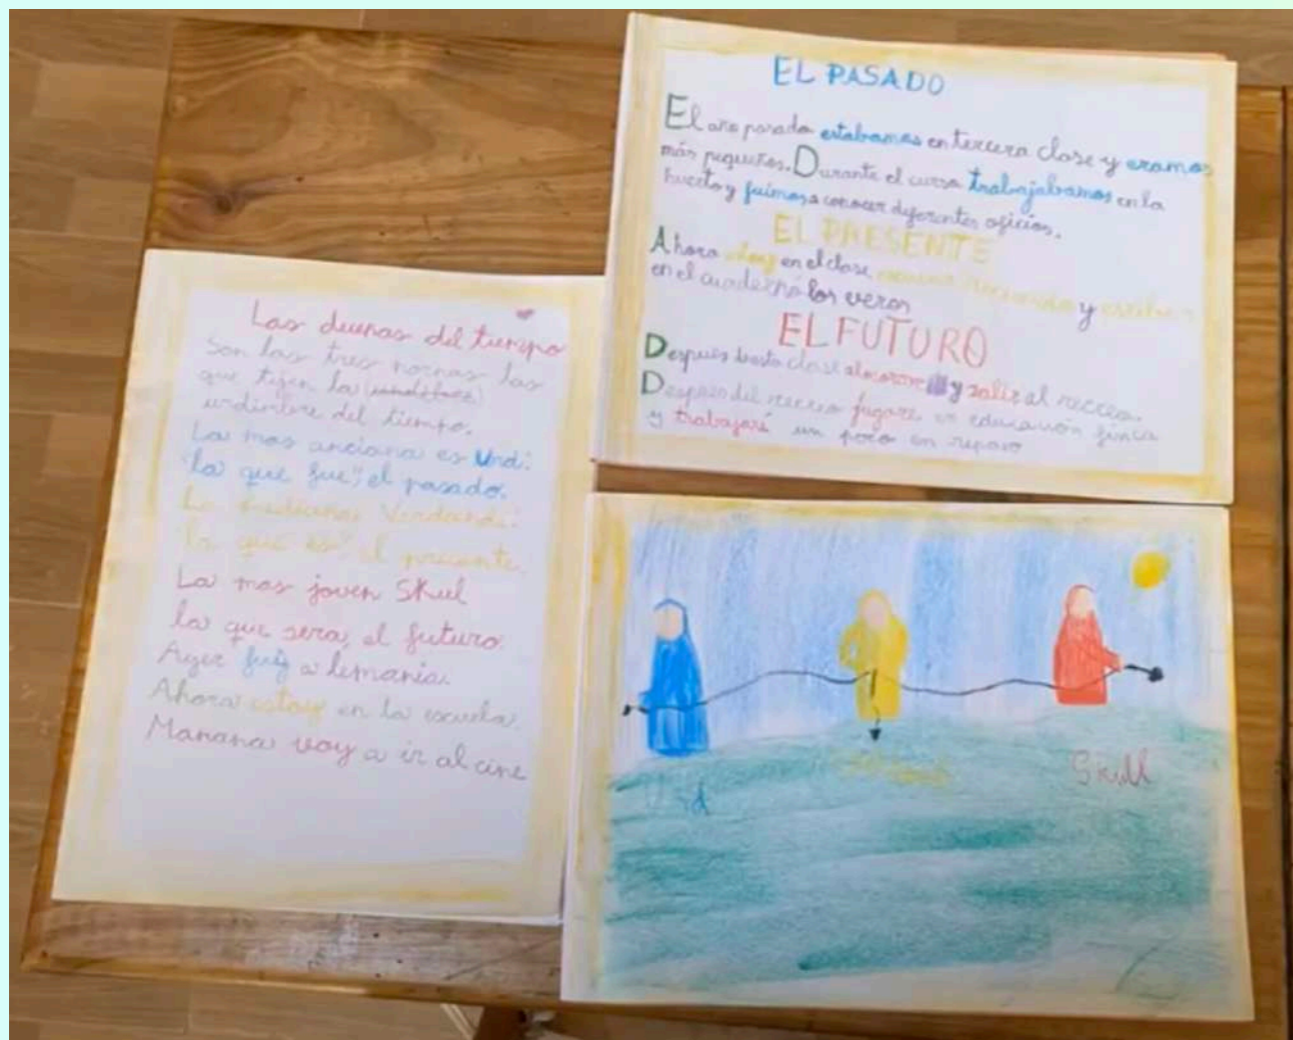 Las duenas del tiempo
Son las tres nornas las
que tijen la
urdimbre del tiempo.
La mas anciana es Urd:
"la que fue", el pasado.
La mediana Verdandi:
la que es", el presente.
La mas joven Skul
la que será, el futuro.
Ayer fuiy a lemania.
Ahora estoy en la escuela.
Manana voy a ir al cine
EL PASADO
El ano pasado estabamos en tercera clase y eramos
más pequeños. Durante el curso trabajabamos en la
huerto y fuimos a conocer diferentes oficios.
EL PRESENTE
Ahora estoy en el clase, y
en el cuaderno los veros
EL FUTURO
Después clase y salir al recreo.
Despues del recreo jugare en educación fisica
y trabajaré un poco en repaso
Urd
Skull